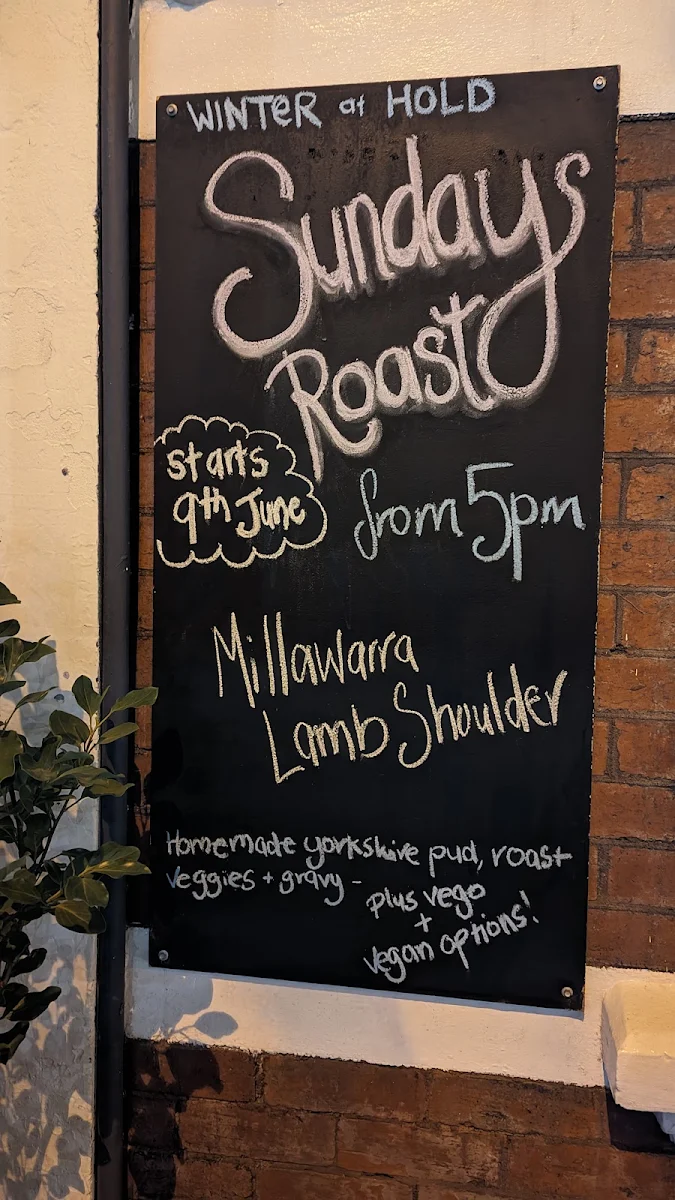 WINTER at HOLD
Sunday
Roast
starts
9th June
from 5pm
Millawarra
Lamb Shoulder
Homemade yorkshire pud, roast
veggies + gravy -
plus vego
+
vegan options!